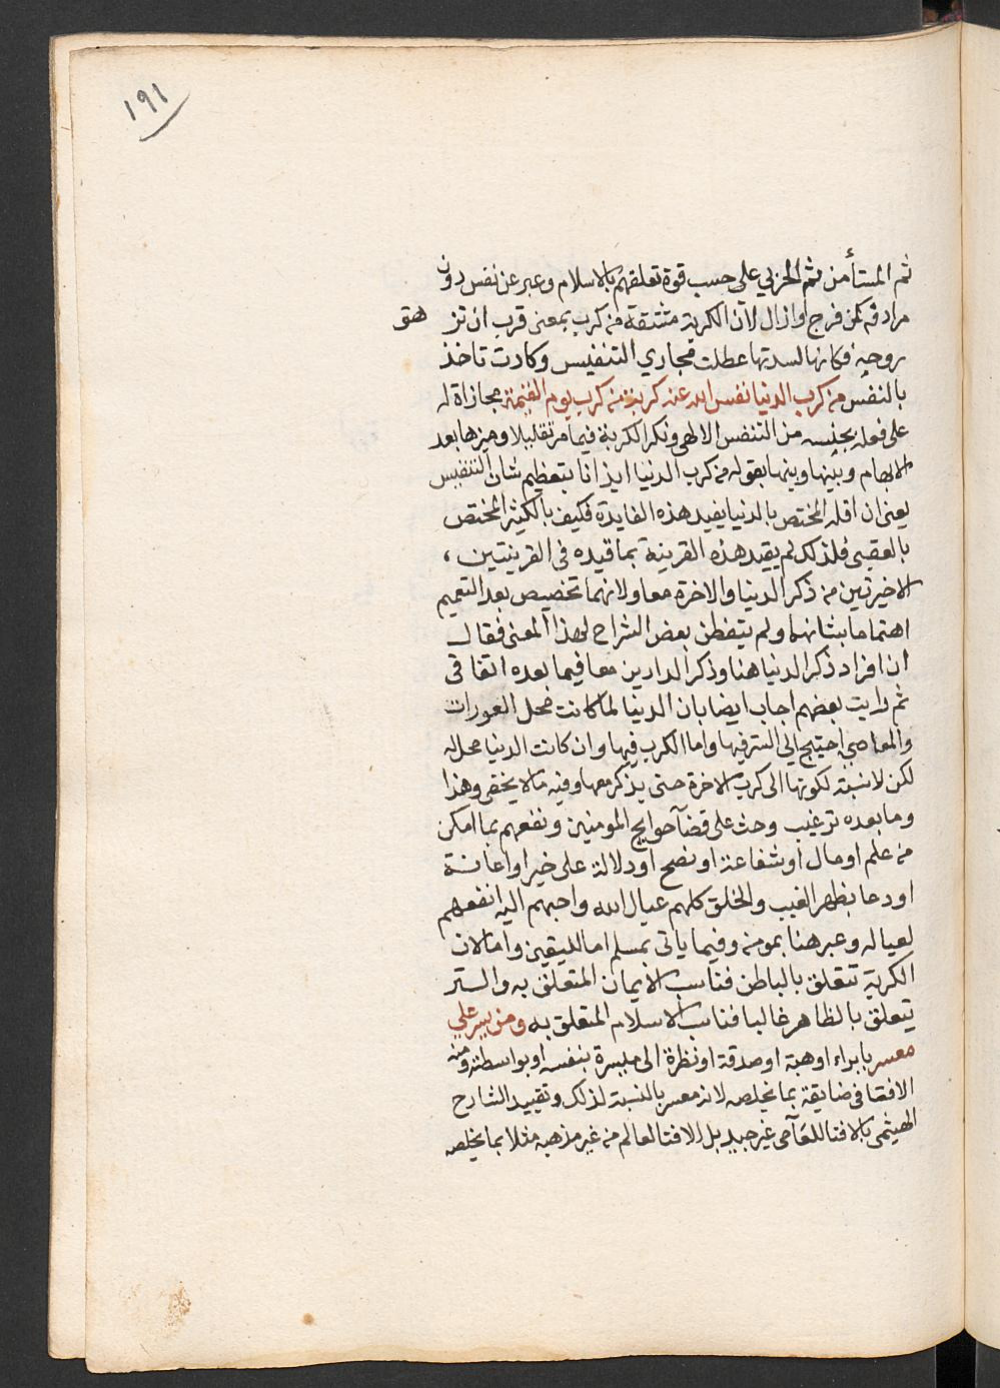 ١٩١
ثم المستأمن ثم الحربي على حسب قوة تعلقهم بالاسلام وعبر عن نفس دون
مرادفه كمن فرج او ازال لان الكربة مشتقة من كرب بمعنى قرب ان تز هق
روحه فكانها لسدتها عطلت مجاري التنفيس وكادت تاخذ
بالنفس من كرب الدنيا نفس الله عنه كربة من كرب يوم القيمة مجازاة له
على فعله بجنسه من التنفس الالهي ونكر الكربة فيما مر تقليلا وميزها بعد
الابهام وبينها وبينها بقوله من كرب الدنيا ايذانا بتعظيم شان التنفيس
يعنى ان اقله المختص بالدنيا يفيد هذه الفايدة فكيف بالكثير المختص
بالعقبى فلذلك لم يقيد هذه القرينة بما قيده فى القرينتين ،
الاخيرتين من ذكر الدنيا والاخرة معا ولانهما تخصيص بعد التعميم
اهتماما بشانهما ولم يتفطن بعض الشراح لهذا المعنى فقال
ان افراد ذكر الدنيا هنا وذكر الدارين معا فيما بعده اتفاقى
ثم رايت بعضهم اجاب ايضا بان الدنيا لما كانت محل العورات
والمعاصي احتيج الى الستر فيها واما الكرب فيها وان كانت الدنيا محل له
لكن لا نسبة لكونها الى كرب الاخرة حتى يذكر معها وفيه ما لا يخفى وهذا
وما بعده ترغيب وحث على قضآ حوايج المومنين ونفعهم بما امكن
من علم او مال او شفاعة او نصح او دلالة على خير او اعانة
او دعا بظهر الغيب والخلق كلهم عيال الله واحبهم اليه انفعهم
لعياله وعبر هنا بمومن وفيما ياتى بمسلم اما لليقين واما لان
الكربة تتعلق بالباطن فناسب الايمان المتعلق به والستر
يتعلق بالظاهر غالبا فناسب الاسلام المتعلق به ومن يسر علي
معسر بابراء او هبة او صدقة او نظرة الى ميسرة بنفسه او بواسطته ومنه
الافتا فى ضايقة بما يخلصه لانه معسر بالنسبة لذلك وتقييد الشارح
الهيثمى بالافتا للعآمى غير جيد بل الافتا لعالم من غير مذهبه مثلا بما يخلصه